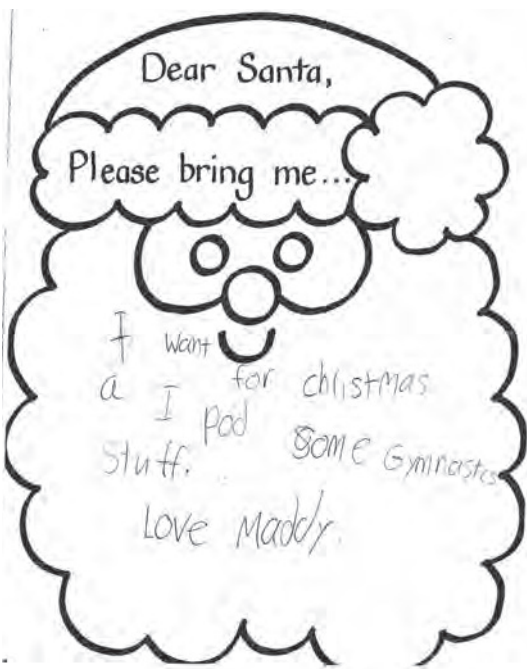 Dear Santa,
Please bring me...
I want
a I for christmas
Pod some Gymnastcs
Stuff.
Love Maddy.